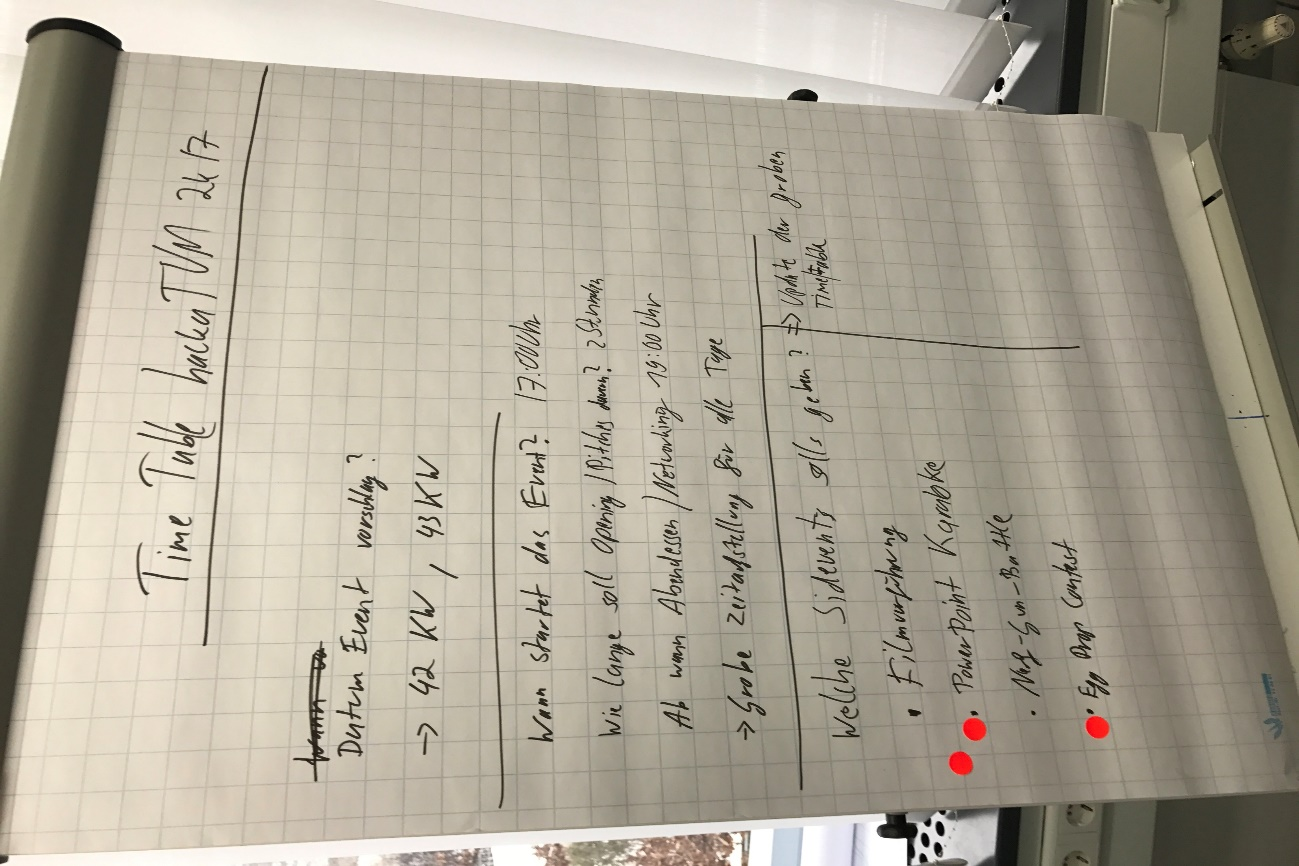 Time Table hackaTUM 24/7
Datum Event vorschlag?
-> 42 KW, 43 KW
Wann startet das Event? 17:00 Uhr
Wie lange soll Opening/Pitches dauern? 2 Stunden
Ab wann Abendessen/Networking 19:00 Uhr
-> Grobe Zeitaufstellung für alle Tage
Welche Sideevents solls geben?
=> Update der groben
Timetable
• Filmvorführung
• PowerPoint Karaoke
• Nerf-Gun-Battle
• Egg Drop Contest